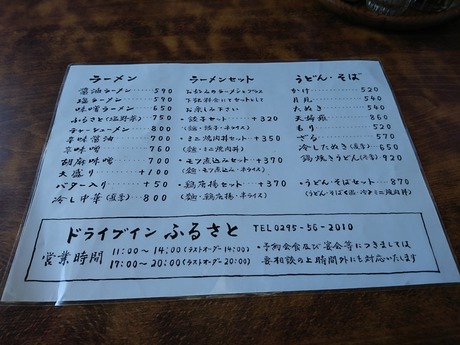 ラーメン
醤油ラーメン 590
塩ラーメン 590
味噌ラーメン 650
ふるさと(塩野菜) 750
チャーシューメン 800
辛味醤油 700
辛味噌 760
胡麻味噌 760
大盛り +100
バター入り +50
冷し中華(夏季) 800
ラーメンセット
お好みのラーメンをプラス
下記料金にてセットにして
お楽しみ下さい
・餃子セット +320
・ミニ焼肉丼セット
・モツ煮込みセット +370
・鶏唐揚セット +370
うどん・そば
かけ 520
月見 540
たぬき 540
天婦羅 860
もり 520
ざる 570
冷したぬき(夏季) 650
鍋焼きうどん(冬季) 920
・うどん・そばセット 870
ドライブイン ふるさと TEL 0295-56-2010
営業時間 11:00〜14:00(ラストオーダー14:00)
17:00〜20:00(ラストオーダー20:00)
・予約会食及び宴会等につきましては
ご相談の上時間外にも対応いたします